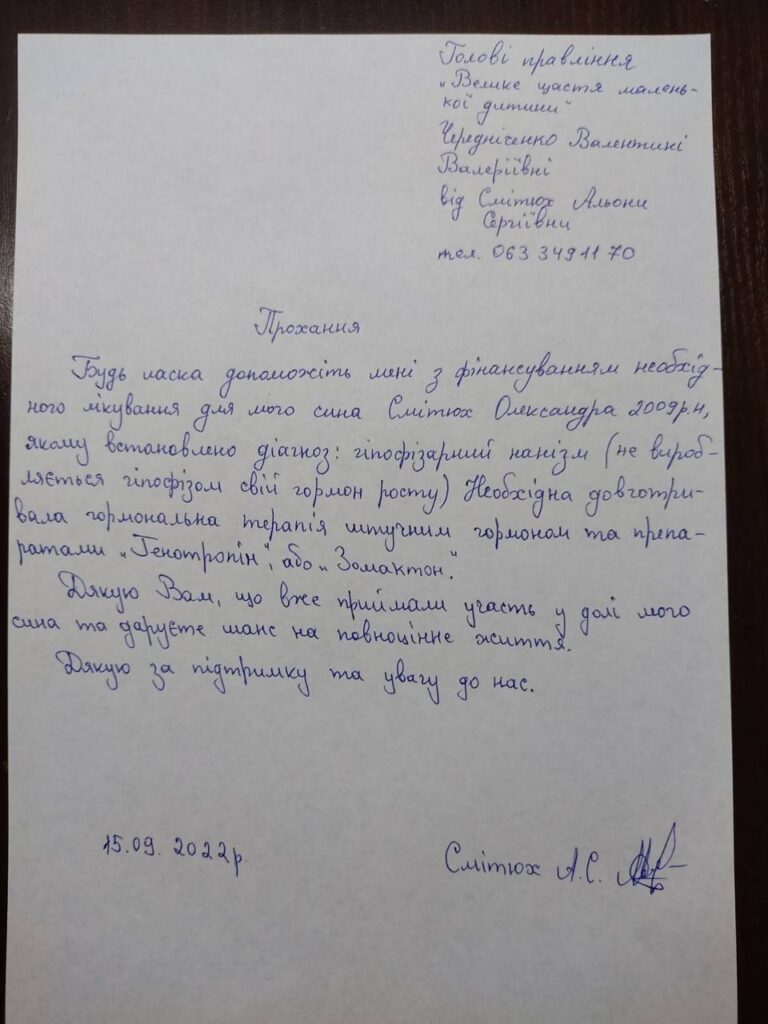 Голові правління
„Велике щастя малень-
кої дитини"
Чередніченко Валентині
Валеріївні
від Смітюх Альони
Сергіївни
тел. 063 349 11 70
Прохання
Будь ласка допоможіть мені з фінансуванням необхід-
ного лікування для мого сина Смітюх Олександра 2009р.н,
якому встановлено діагноз: гіпофізарний нанізм (не вироб-
ляється гіпофізом свій гормон росту) Необхідна довготри-
вала гормональна терапія штучним гормоном та препа-
ратами „Генотропін", або „Зомактон."
Дякую Вам, що вже приймали участь у долі мого
сина та даруєте шанс на повноцінне життя.
Дякую за підтримку та увагу до нас.
15.09. 2022р.
Смітюх А.С.